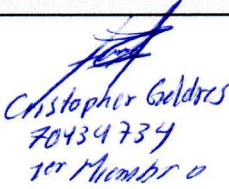 Cristopher Geldres
70434734
1er Miembro